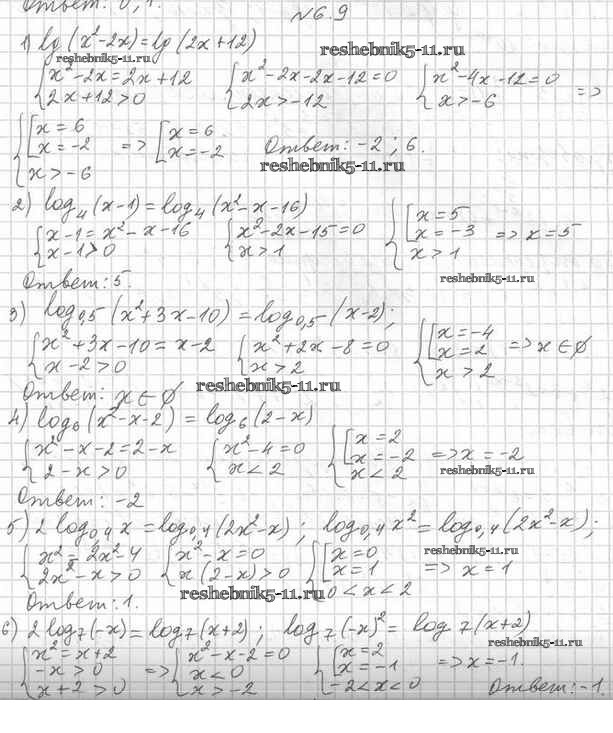 Ответ: 0; 1.
№6.9
1) lg(x²-2x)=lg(2x+12)
reshebnik5-11.ru
reshebnik5-11.ru
{x²-2x=2x+12 {x²-2x-2x-12=0 {x²-4x-12=0
{2x+12>0 {2x>-12 {x>-6 =>
{[x=6 => [x=6
[x=-2 [x=-2 Ответ: -2; 6.
{x>-6
reshebnik5-11.ru
2) log₄(x-1)=log₄(x²-x-16)
{x-1=x²-x-16 {x²-2x-15=0 {[x=5
{x-1>0 {x>1 [x=-3 => x=5
{x>1
Ответ: 5.
reshebnik5-11.ru
3) log₀,₅(x²+3x-10)=log₀,₅(x-2);
{x²+3x-10=x-2 {x²+2x-8=0 {[x=-4
{x-2>0 {x>2 [x=2 => x∈∅
{x>2
Ответ: x∈∅
reshebnik5-11.ru
4) log₆(x²-x-2)=log₆(2-x)
{x²-x-2=2-x {x²-4=0 {[x=2
{2-x>0 {x<2 [x=-2 => x=-2
{x<2
reshebnik5-11.ru
Ответ: -2
5) 2log₀,₄x=log₀,₄(2x²-x); log₀,₄x²=log₀,₄(2x²-x);
{x²=2x²-4 {x²-x=0 {[x=0
{2x²-x>0 {x(2-x)>0 [x=1 => x=1
{0<x<2
reshebnik5-11.ru
reshebnik5-11.ru
Ответ: 1.
6) 2log₇(-x)=log₇(x+2); log₇(-x)²=log₇(x+2)
reshebnik5-11.ru
{x²=x+2 {x²-x-2=0 {[x=2
{-x>0 => {x<0 [x=-1 => x=-1.
{x+2>0 {x>-2 {-2<x<0 Ответ: -1.